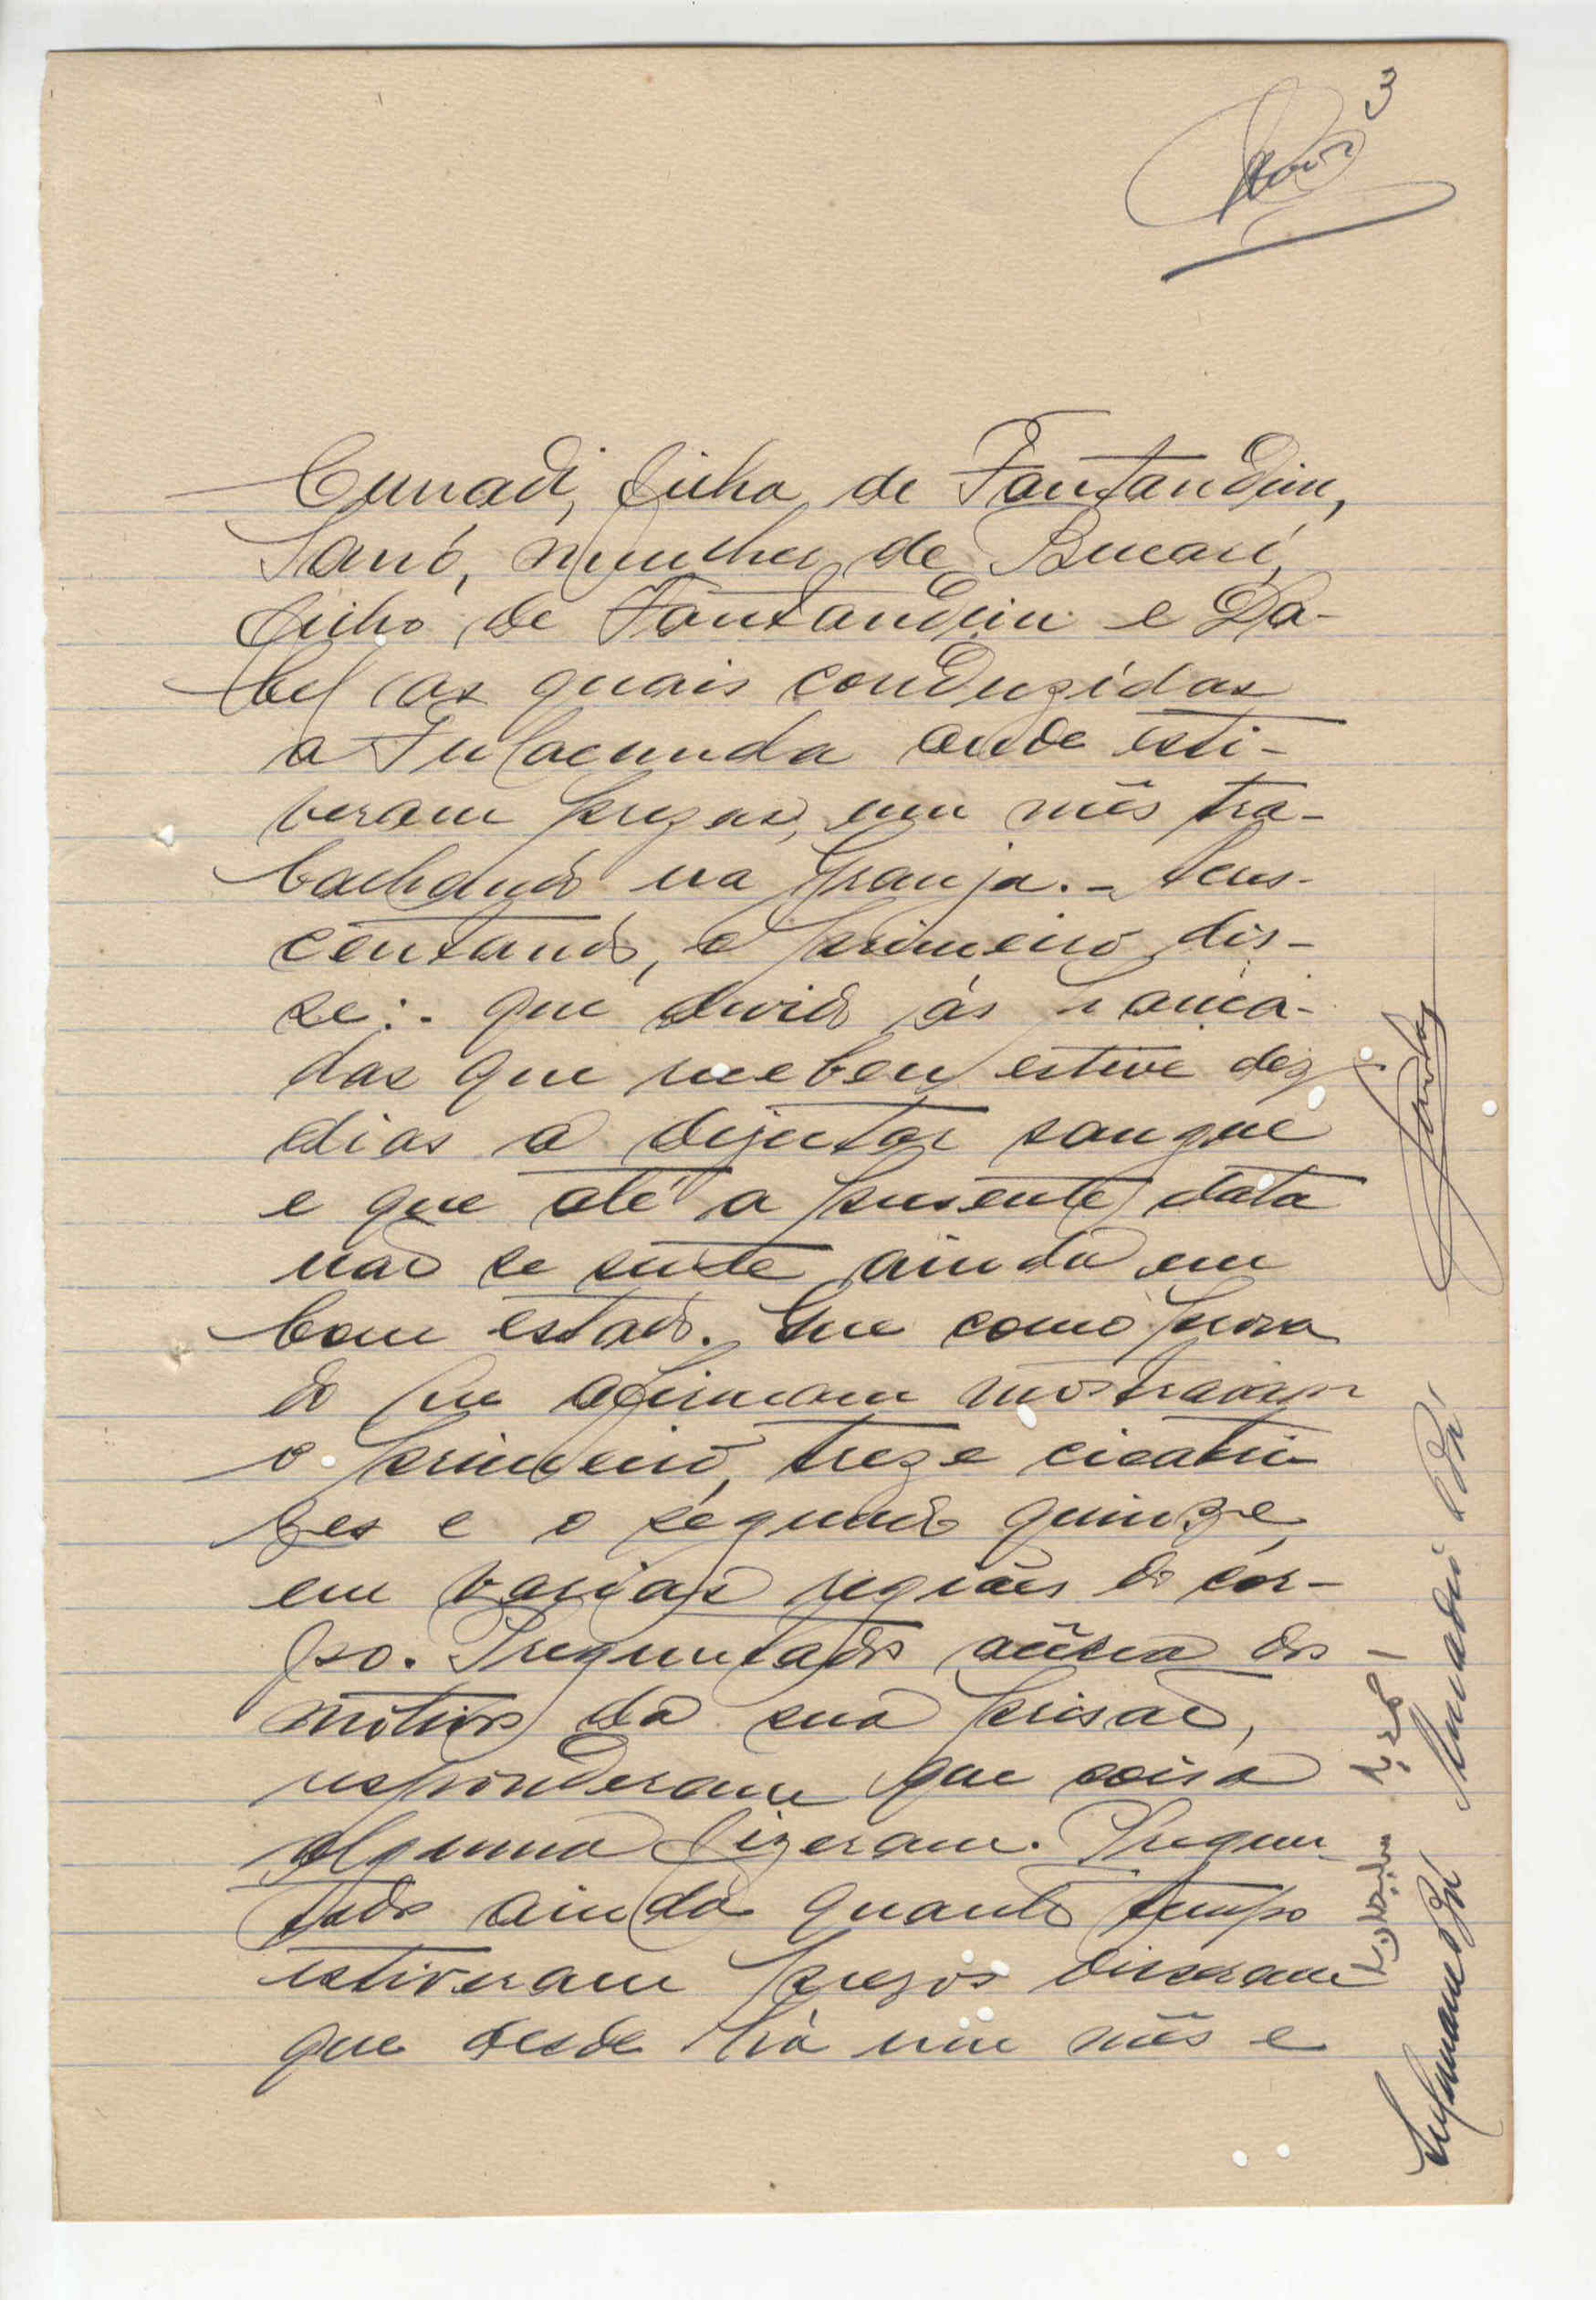 3
Cunadi, filha de Fantandim,
Sanó, mulher de Bucari,
filho de Fantandim e Da-
bel as quais conduzidas
a Fulacunda onde esti-
veram prezas, um mês tra-
balhando na Granja. - Acres-
centando, o primeiro dis-
se: - que devido ás pauca-
das que recebeu esteve dez
dias a dejectar sangue
e que até a presente data
não se sente ainda em
bom estado. Que como prova
do que afirmam mostraram
o primeiro, treze cicatri-
zes e o segundo quinze,
em varias regiões do cor-
po. Preguntados acêrca dos
motivos da sua prisão,
responderam que coisa
alguma fizeram. Pregun-
tados ainda quanto tempo
estiveram prezos disseram
que desde há um mês e